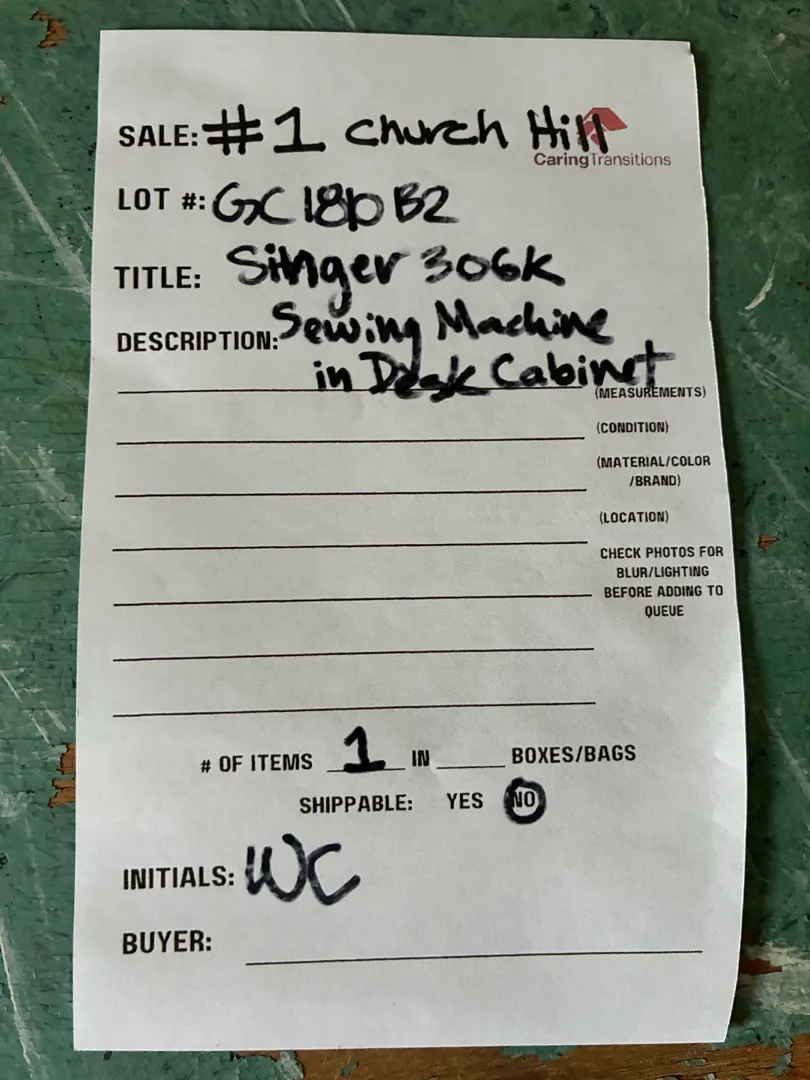 SALE: #1 Church Hill
CaringTransitions
LOT #: GC 18b B2
TITLE: Singer 306K
DESCRIPTION: Sewing Machine
in Desk Cabinet
(MEASUREMENTS)
(CONDITION)
(MATERIAL/COLOR
/BRAND)
(LOCATION)
CHECK PHOTOS FOR
BLUR/LIGHTING
BEFORE ADDING TO
QUEUE
# OF ITEMS 1 IN ____ BOXES/BAGS
SHIPPABLE: YES NO
INITIALS: WC
BUYER: